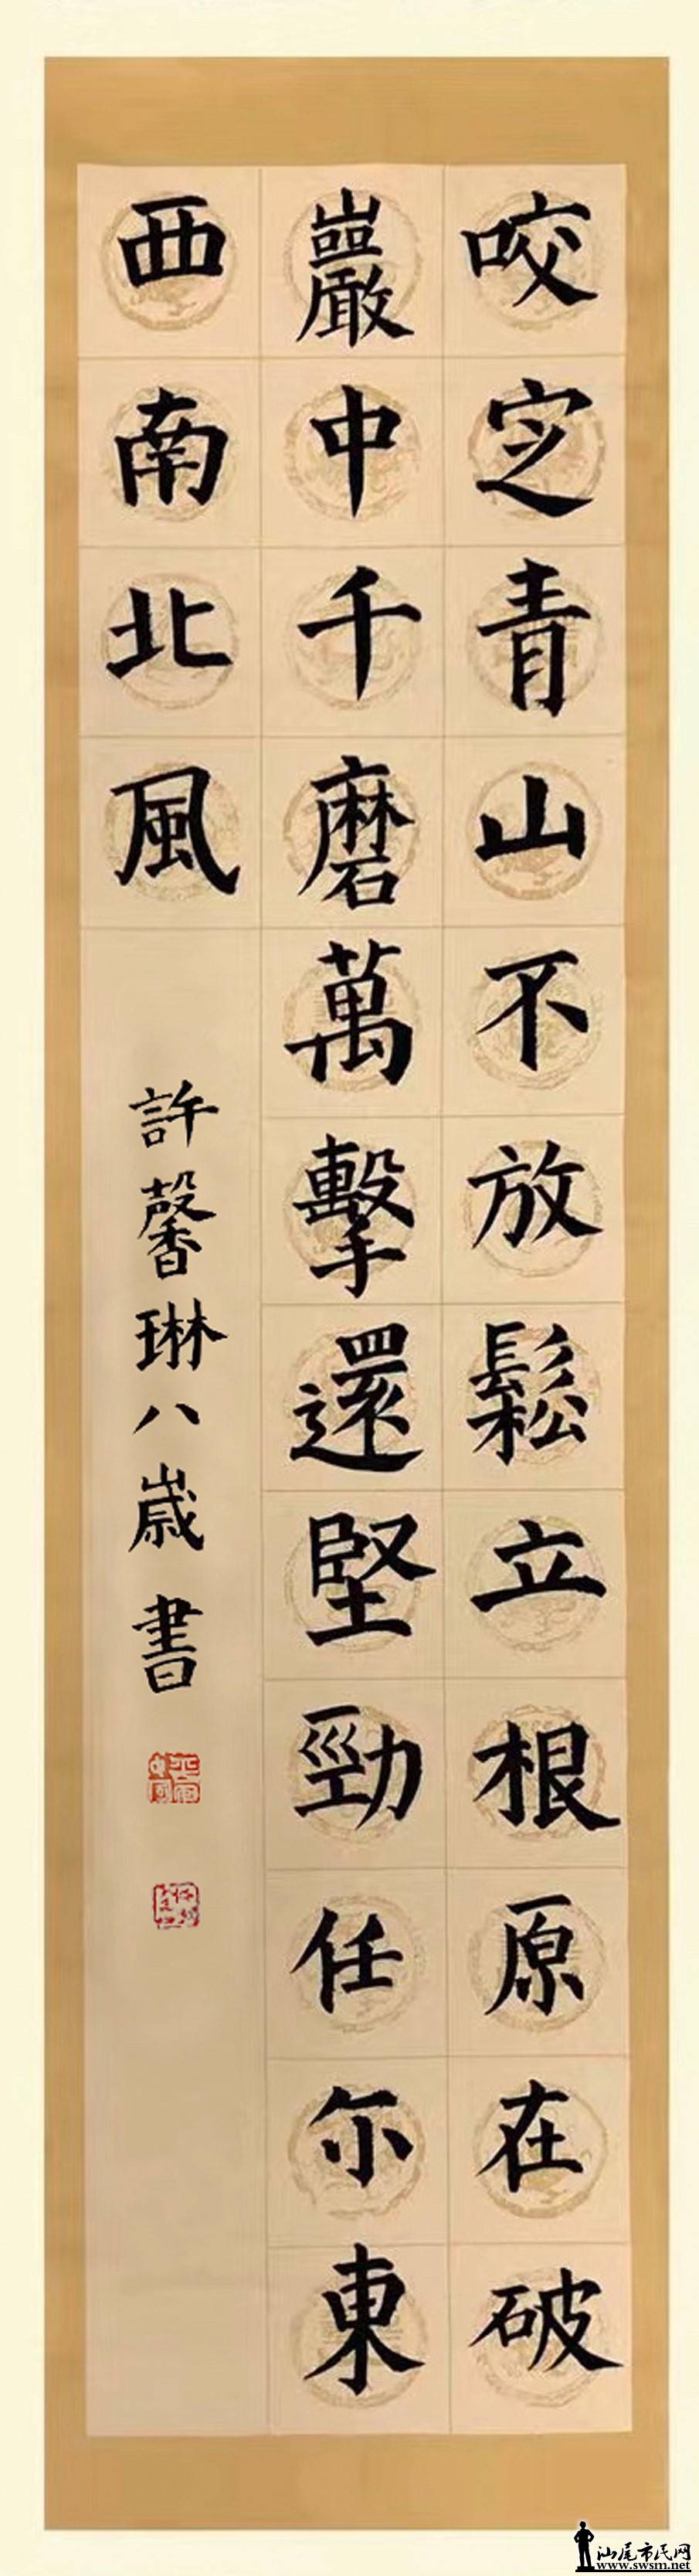 咬定青山不放鬆立根原在破
巖中千磨萬擊還堅勁任尓東
西南北風
許馨琳八歲書
汕尾市民网
www.swsm.net